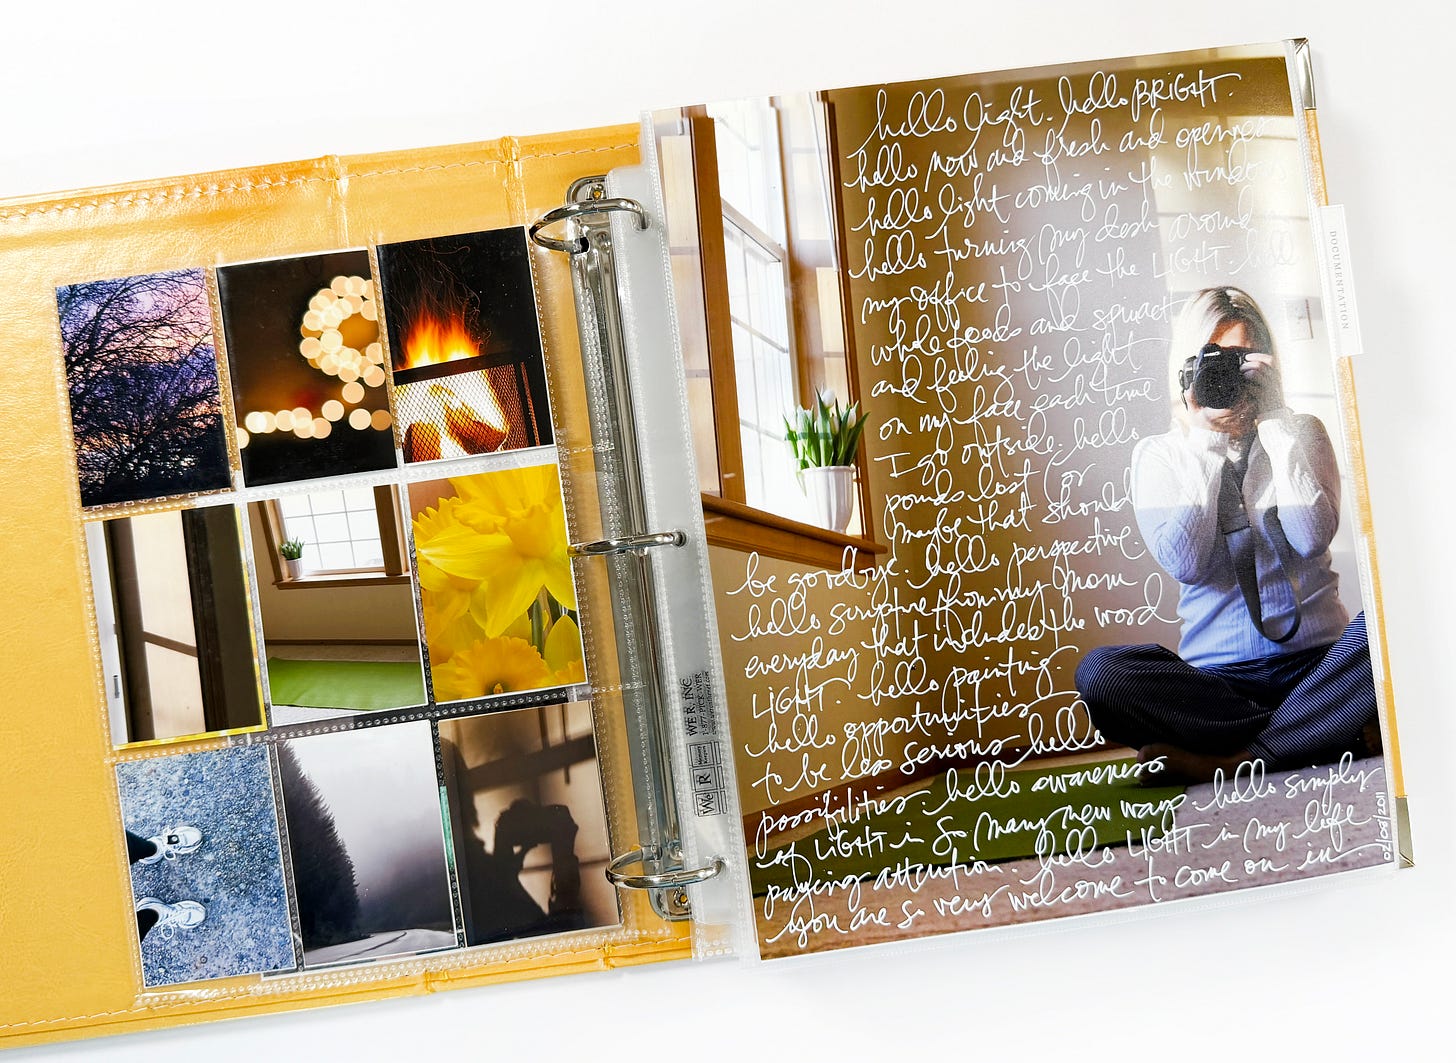 hello light. hello BRIGHT.
hello now and fresh and openness
hello light coming in the windows
hello turning my desk around in
my office to face the LIGHT. hello
whole foods and spinach
and feeling the light
on my face each time
I go outside. hello
pounds lost (or
maybe that should
be goodbye. hello perspective.
hello scripture from my mom
everyday that includes the word
LIGHT. hello painting.
hello opportunities
to be less serious. hello
possibilities. hello awareness
of LIGHT in so many new ways. hello simply
paying attention. hello LIGHT in my life.
you are so very welcome to come on in.
02/08/2011
DOCUMENTATION
WE R, INC.
1-877-PICK-WER
We R